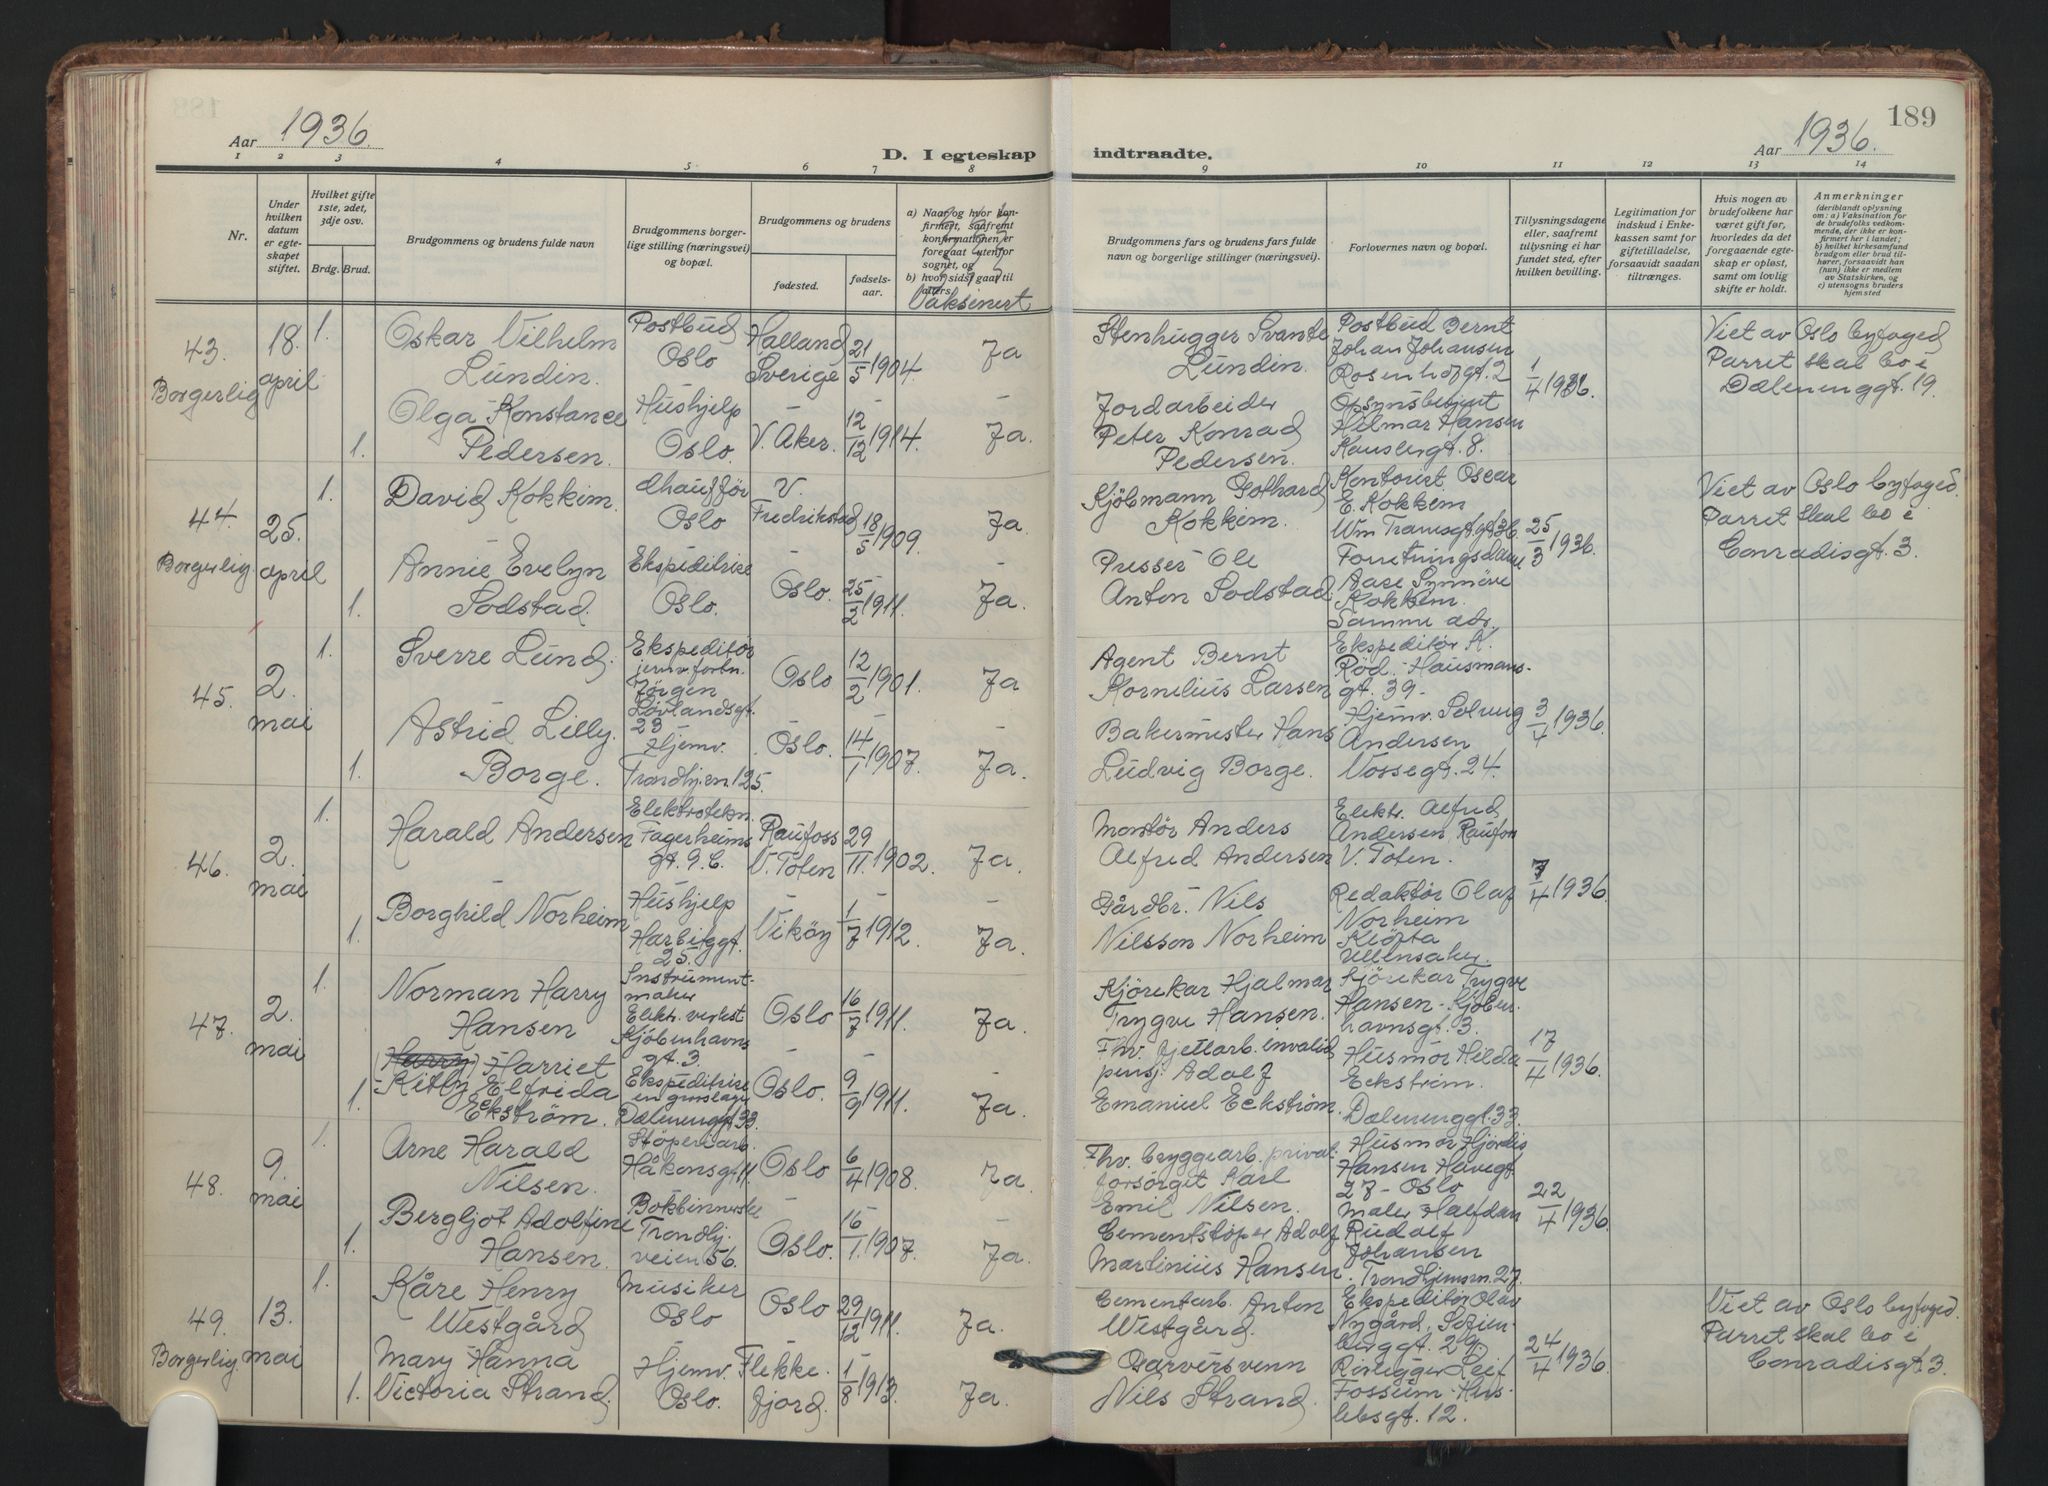 Aar 1936.
D. I egteskap indtraadte.
Aar 1936. 189
1 2 3 4 5 6 7 8 9 10 11 12 13 14
Nr.
Under hvilken datum er egteskapet stiftet.
Hvilket gifte 1ste, 2det, 3dje osv.
Brdg. Brud.
Brudgommens og brudens fulde navn
Brudgommens borgerlige stilling (næringsvei) og bopæl.
Brudgommens og brudens
fødested.
fødselsaar.
a) Naar og hvor konfirmert, saafremt konfirmationen er foregaat utenfor sognet, og
b) hvor sidst gaat til alters.
Vaksinert
Brudgommens fars og brudens fars fulde navn og borgerlige stillinger (næringsvei).
Forlovernes navn og bopæl.
Tillysningsdagene eller, saafremt tillysning ei har fundet sted, efter hvilken bevilling.
Legitimation for indskud i Enkekassen samt for giftetilladelse, forsaavidt saadan tiltrænges.
Hvis nogen av brudefolkene har været gift før, hvorledes da det foregaaende egteskap er opløst, samt om lovlig skifte er holdt.
Anmerkninger
(deriblandt oplysning om: a) Vaksination for de brudefolks vedkommende, der ikke er konfirmert her i landet; b) hvilket kirkesamfund brudgom eller brud tilhører, forsaavidt han (hun) ikke er medlem av Statskirken, og c) utensogns bruders hjemsted
43. Borgerlig
18. april
1.
Oskar Vilhelm
Lundin.
Postbud
Oslo
Halland
Sverige
21/5 1904.
Ja
Stenhugger Svante
Lundin.
Postbud Bernt
Johan Johansen
Rosenhofgt. 2
1/4 1936.
Viet av Oslo byfoged
Parret skal bo i
Dælenenggt. 19.
1.
Olga Konstance
Pedersen.
Hushjelp
Oslo.
V. Aker.
12/12 1914.
Ja.
Jordarbeider
Peter Konrad
Pedersen.
Opsynsbetjent
Hilmar Hansen
gt. 8.
44. Borgerlig
25. april
1.
David Kokkim.
Chaufför
Oslo
V.
Fredrikstad
18/5 1909.
Ja
Kjöbmann Gothard
Kokkim.
Kontorist Oscar
E. Kokkem
Wm Tramsgt. 36.
25/3 1936.
Viet av Oslo byfoged.
Parret skal bo i
Conradisgt. 3.
1.
Annie Evelyn
Sodstad.
Ekspeditrise
Oslo.
Oslo.
25/2 1911.
Ja.
Presser Ole
Anton Sodstad.
Forretningsdame
Aase Synnöve
Kokkem.
Samme adr.
45.
2. mai
1.
Sverre Lund.
Ekspeditör
jernv. forbn.
Jörgen
Lövlandsgt.
29
Oslo
12/2 1901.
Ja
Agent Bernt
Kornelius Larsen
Ekspeditör A.
Röd. Hausmans-
gt. 39-
3/4 1936.
1.
Astrid Lilly
Borge.
Hjemv.
Trondhj.en. 125.
Oslo.
14/1 1907.
Ja.
Bakermester Hans
Ludvig Borge.
Hjemv. Solveig
Andersen
Vossegt. 24.
46.
2. mai
1.
Harald Andersen
Elektrotekn.
Fagerheims
gt. 9. C.
Raufoss
V. Toten
29/11 1902.
Ja.
Montör Anders
Alfred Andersen
Elektr. Alfred
Andersen, Raufoss
V. Toten.
7/4 1936.
1.
Borghild Norheim
Hushjelp
Harbitzgt.
25.
Viköy
1/7 1912.
Ja.
Gårdbr. Nils
Nilsson Norheim
Redaktör Olaf
Norheim
Klöfta
Ullensaker.
47.
2. mai
1.
Norman Harry
Hansen
Instrument-
maker
Elektr. verkst.
Kjöbenhavns
gt. 3.
Oslo
16/7 1911.
Ja.
Kjörekar Hjalmar
Trygve Hansen.
Kjörekar Trygve
Hansen - Kjöben-
havnsgt. 3.
17/4 1936.
1.
(Harry) Harriet
-Kitty Elfrida
Eckström.
Ekspeditrise
en grosslager
Dælenenggt. 33.
Oslo.
9/9 1911.
Ja.
Fhv. fjellarb. invalid
pensj. Adolf
Emanuel Eckström.
Husmor Hilda
Eckström.
Dælenenggt. 33.
48.
9. mai
1.
Arne Harald
Nilsen.
Stöperiarb.
Håkonsgt. 11.
Oslo
6/4 1908.
Ja.
Fhv. bryggearb. privat
forsörget Karl
Emil Nilsen.
Husmor Hjördis
Hansen Havegt.
27 - Oslo
22/4 1936.
1.
Bergljot Adolfine
Hansen.
Bokbinnerske
Trondhj.
veien 56.
Oslo.
16/1 1907.
Ja.
Cementstöper Adolf
Martinius Hansen.
Maler Halfdan
Rudolf
Johansen
Trondhjemsvn. 27.
49. Borgerlig
13. mai
1.
Kåre Henry
Westgård
Musiker
Oslo
Oslo
29/12 1911.
Ja.
Cementarb. Anton
Westgård.
Ekspeditör Olav
Nygård, Sofien-
berggt. 29.
24/4 1936.
Viet av Oslo byfoged.
Parret skal bo i
Conradisgt. 3.
1.
Mary Hanna
Victoria Strand.
Hjemv.
Oslo.
Flekke-
fjord.
1/8 1913.
Ja.
Garversvenn
Nils Strand.
Rörlegger Leif
Fossum - Hus-
lebsgt. 12.